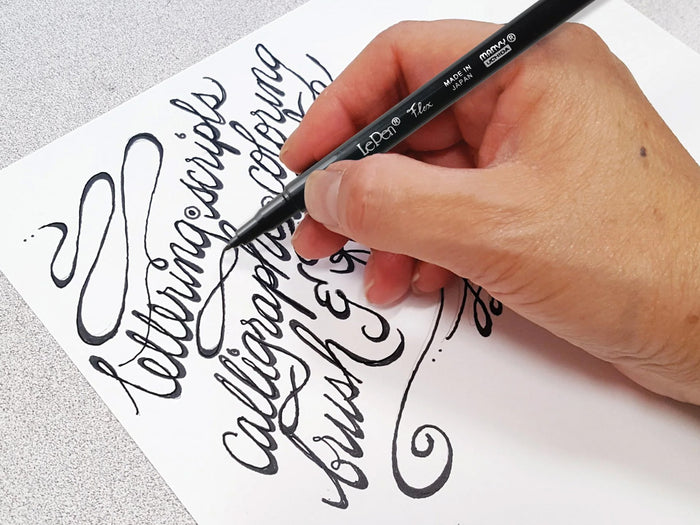 lettering scripts
Calligraphy coloring
brush &
LePen® Flex
MADE IN
JAPAN
marvy®
UCHIDA